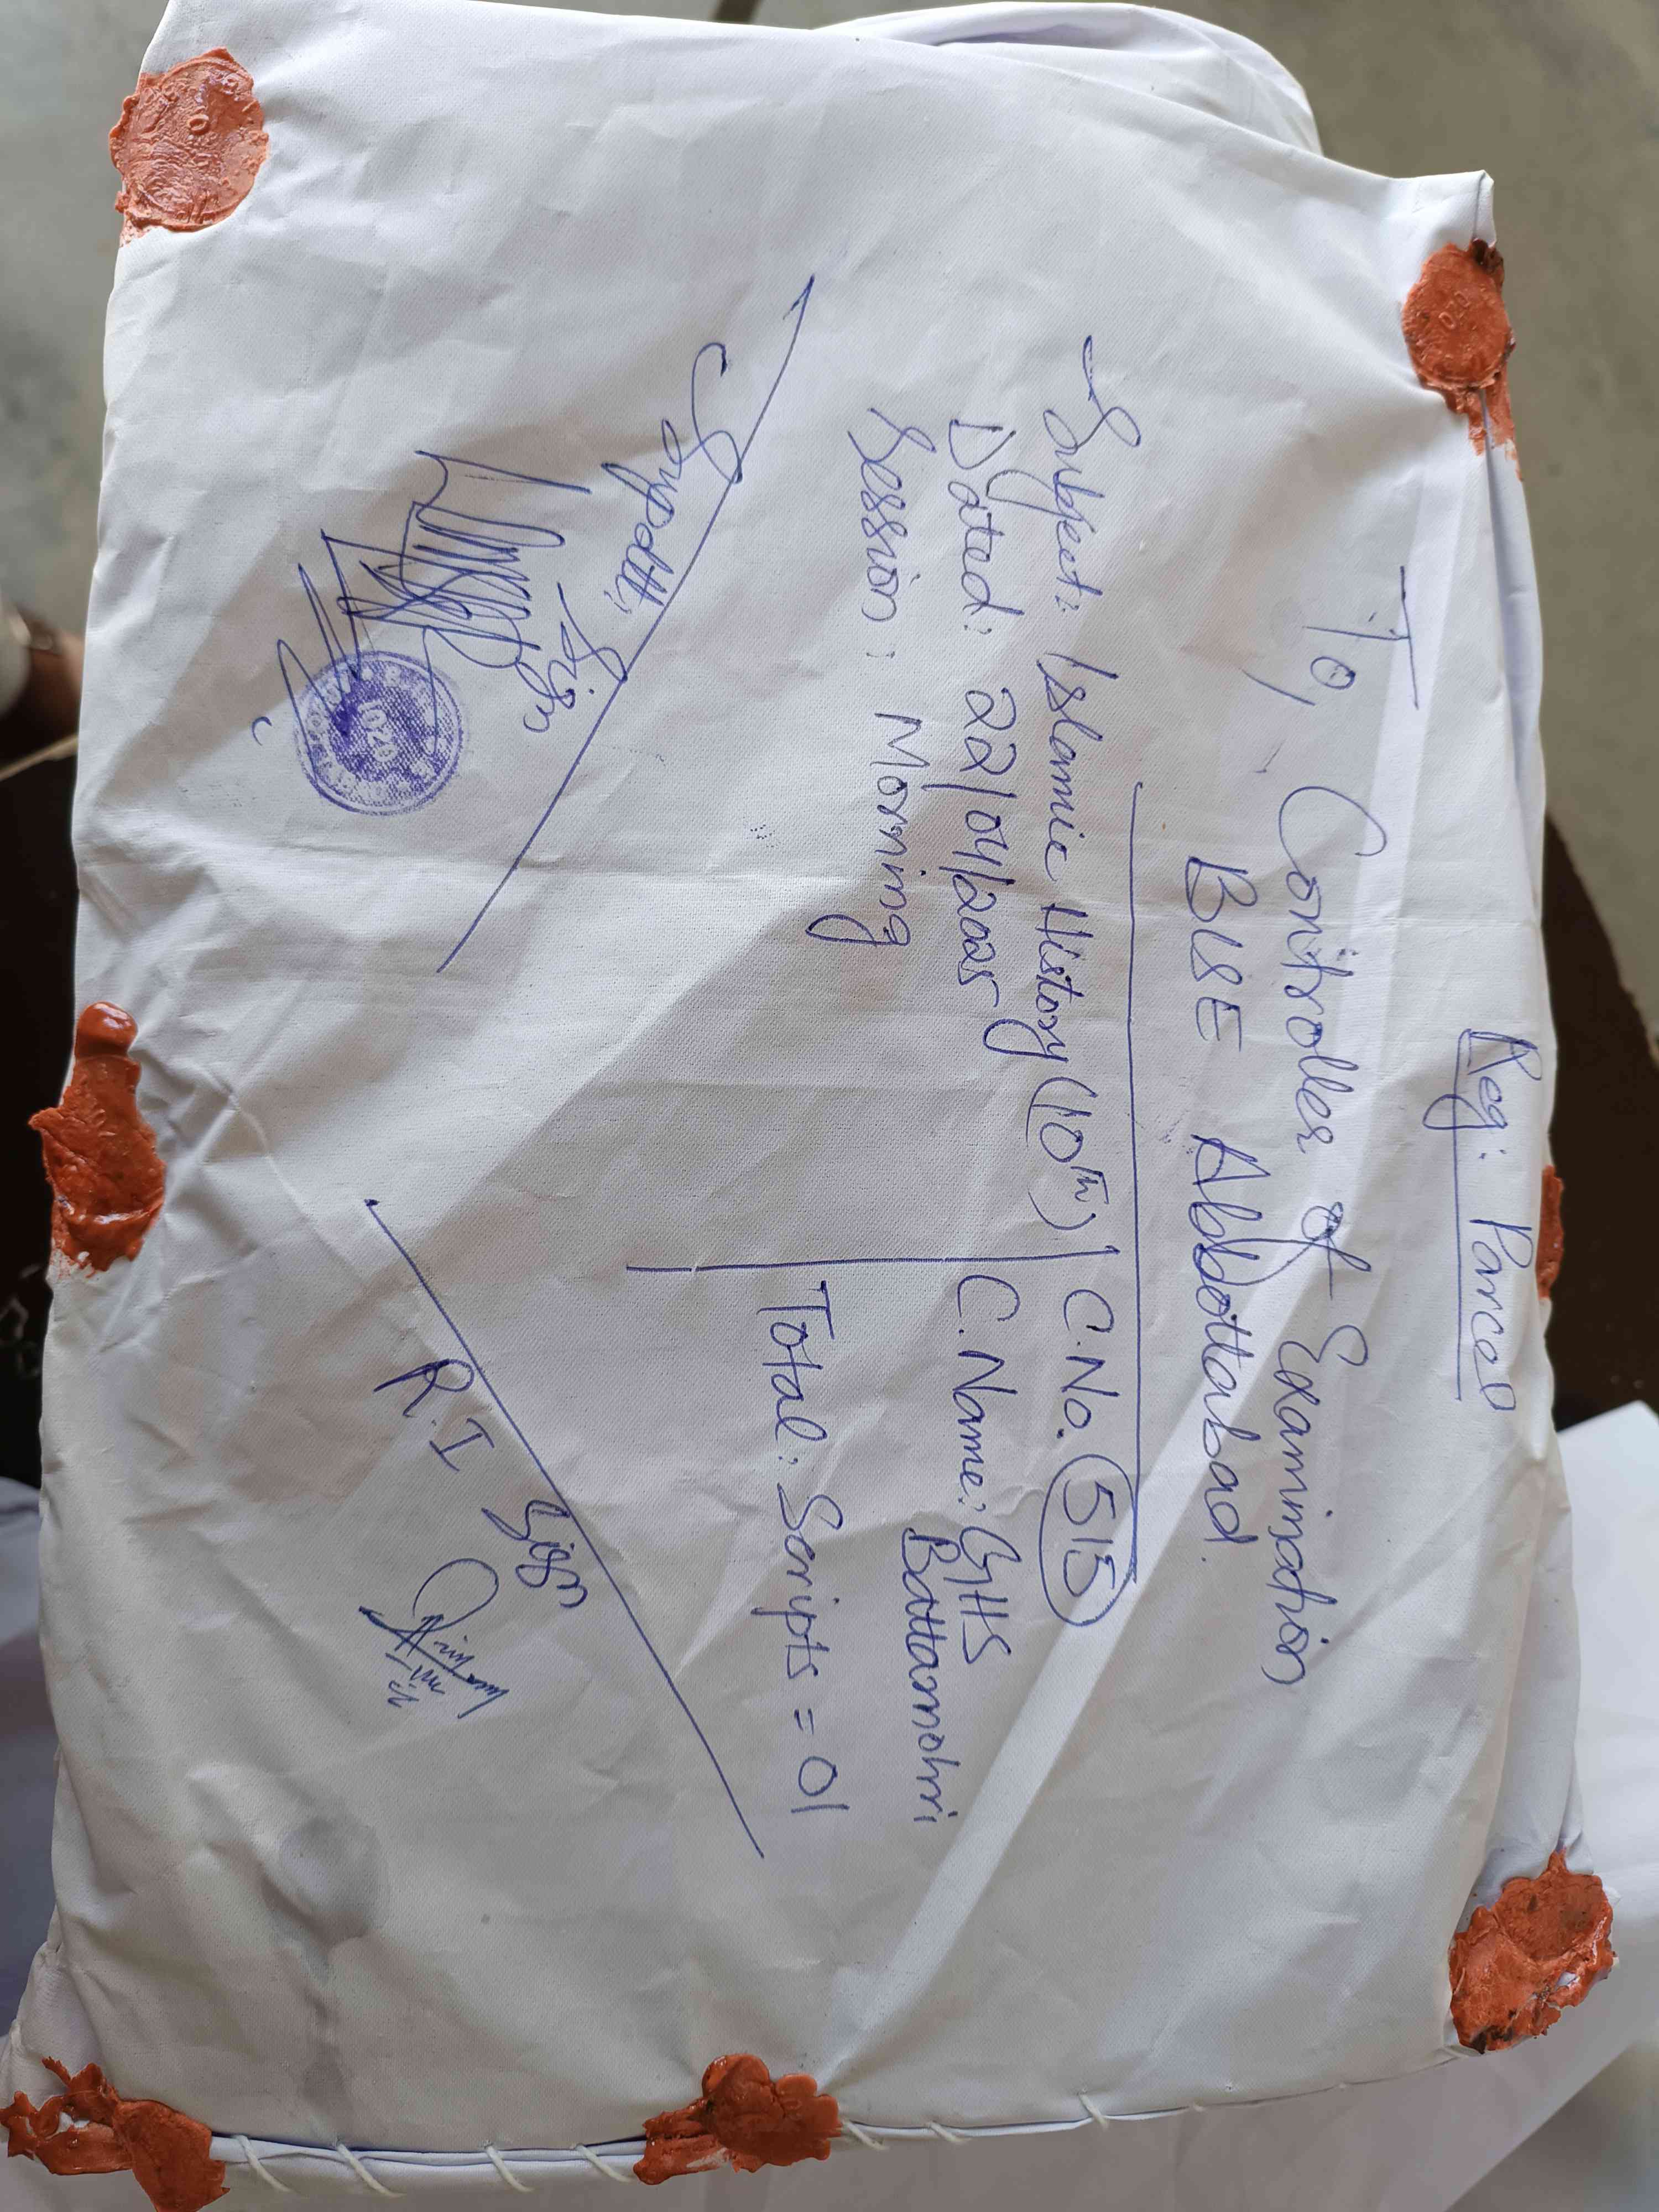 Reg: Parcel
To,
Controller of Examination
BISE Abbottabad.
Subject: Islamic History (10th)
Dated: 22/04/2025
Session: Morning
C.No. 515
C.Name: GHS
Battamohri
Total: Scripts = 01
Supdtt; Sign
R.I Sign